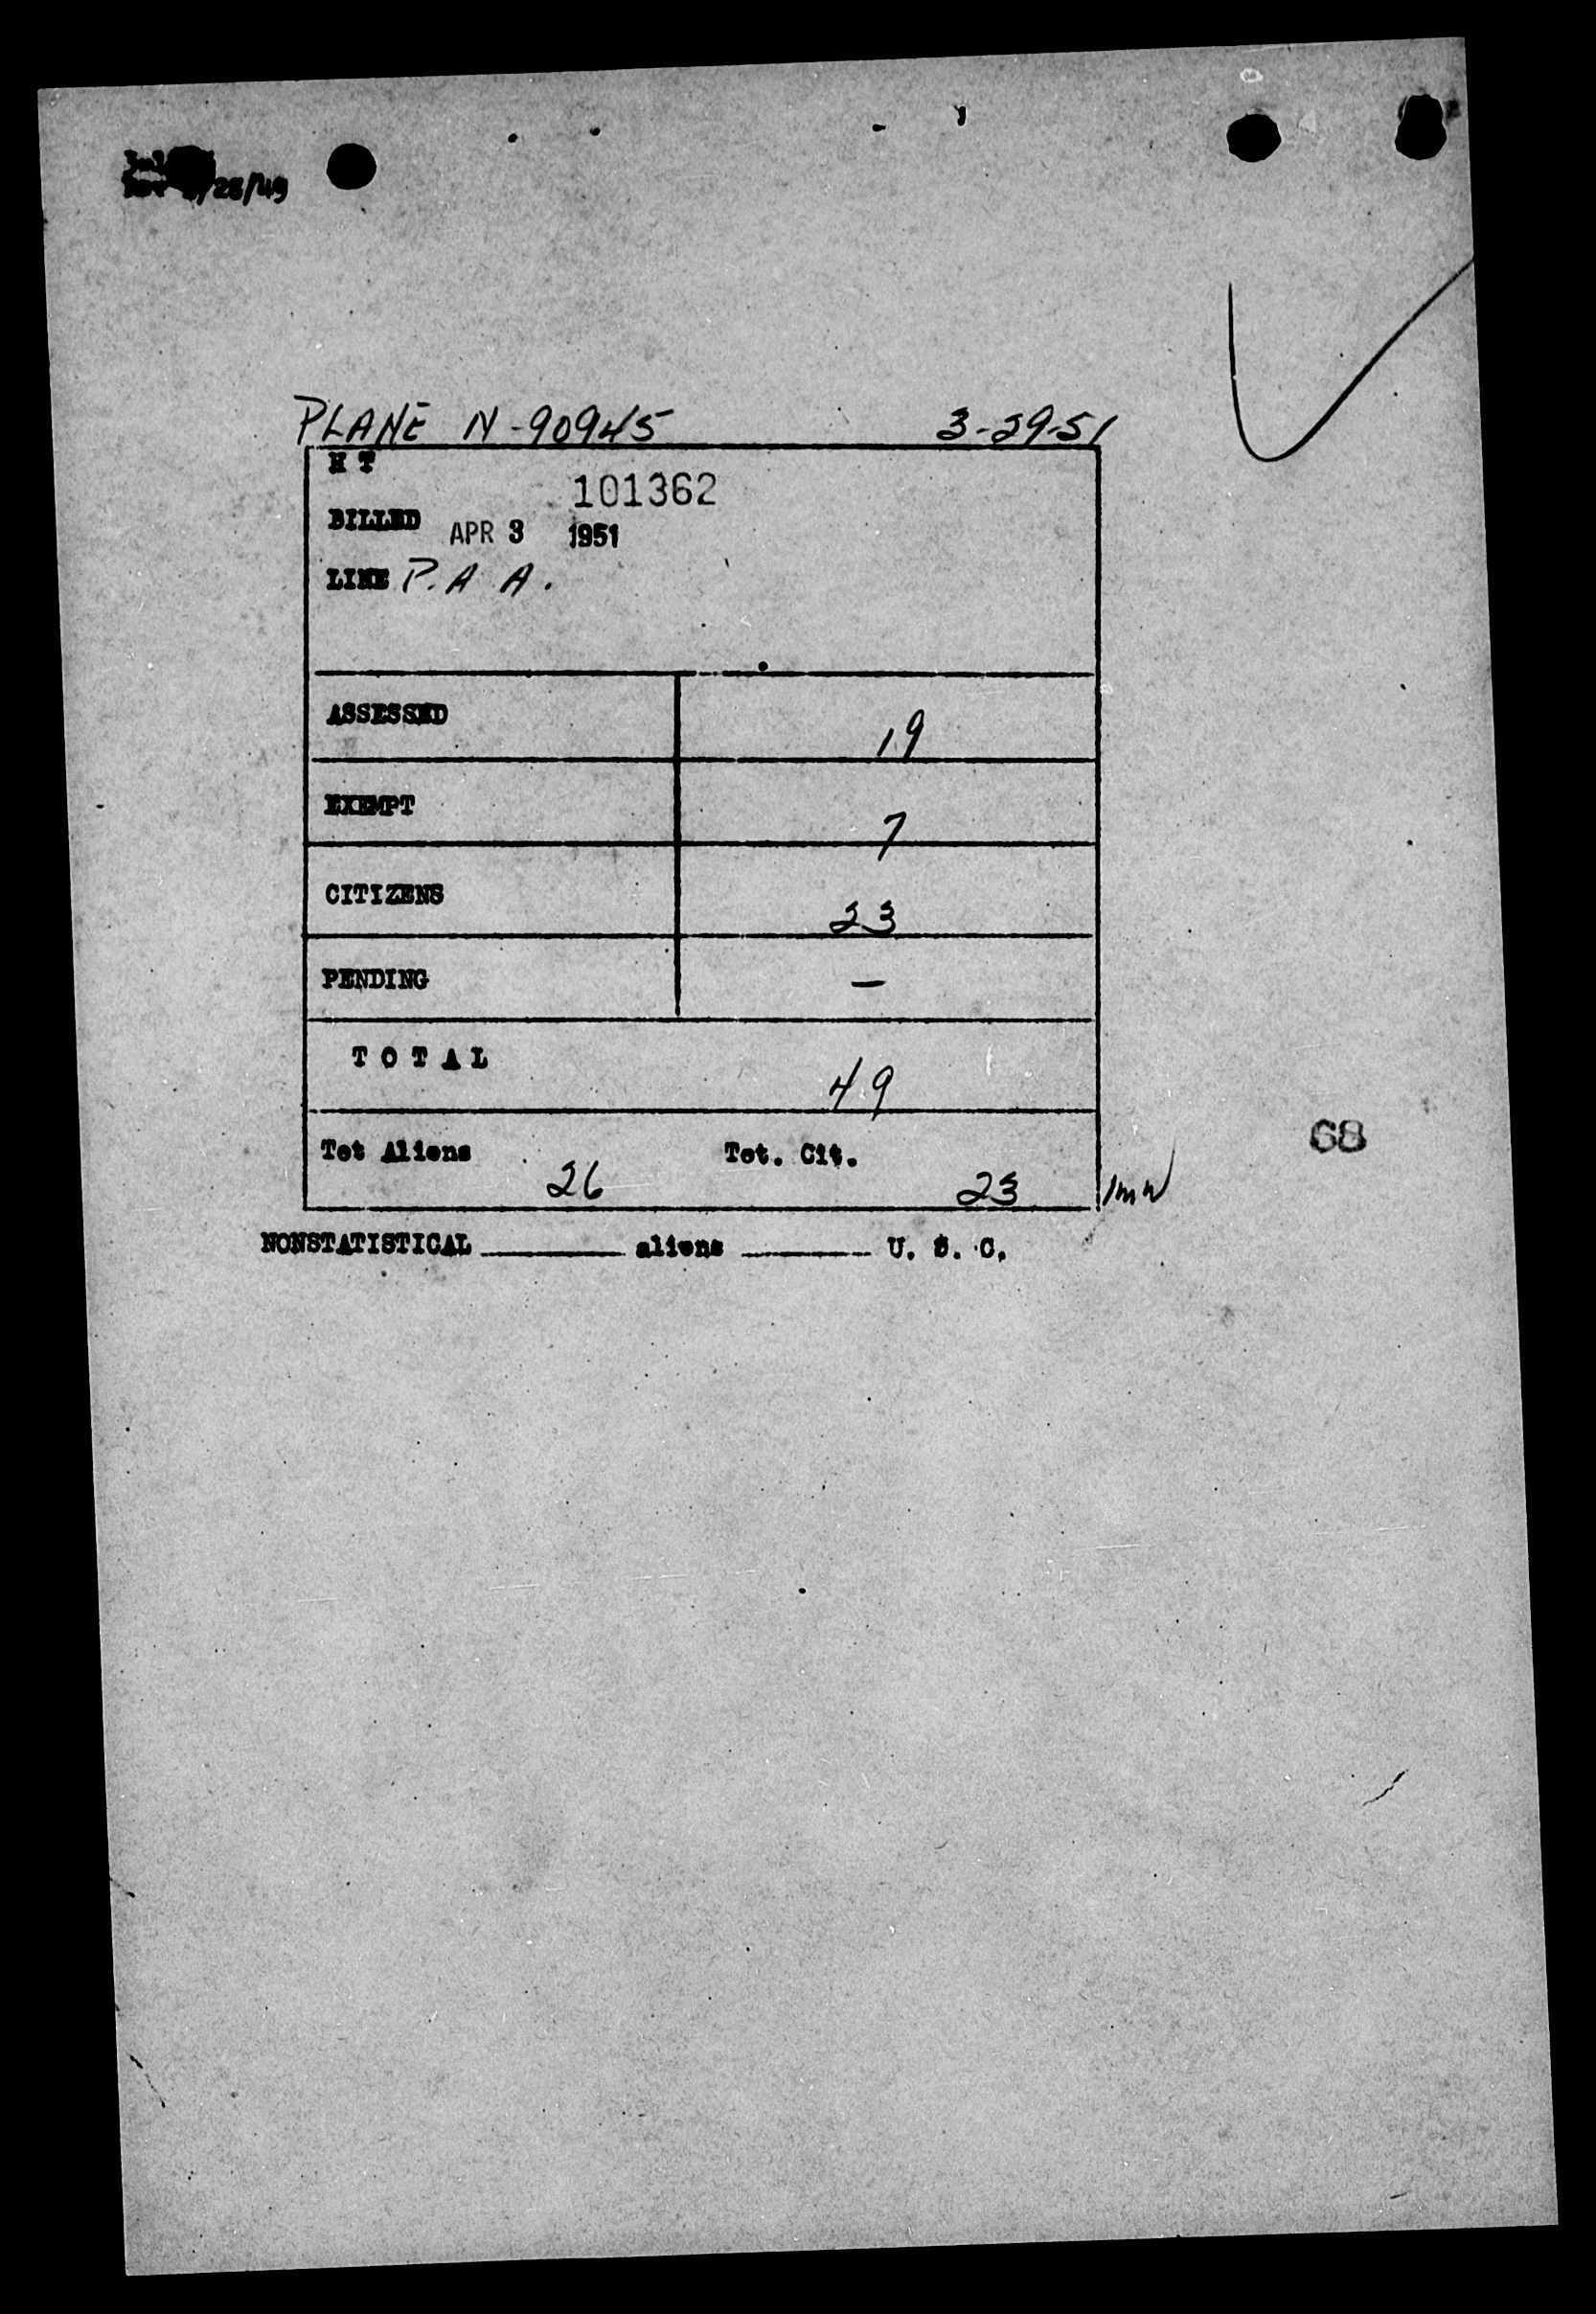 /28/49
PLANE N-90945 3-29-51
H T
101362
BILLED APR 3 1951
LINE P. A A.
ASSESSED 19
EXEMPT 7
CITIZENS 23
PENDING —
T O T A L 49
68
Tot Aliens 26 Tot. Cit. 23 /mw
NONSTATISTICAL ______ aliens ______ U. S. C.